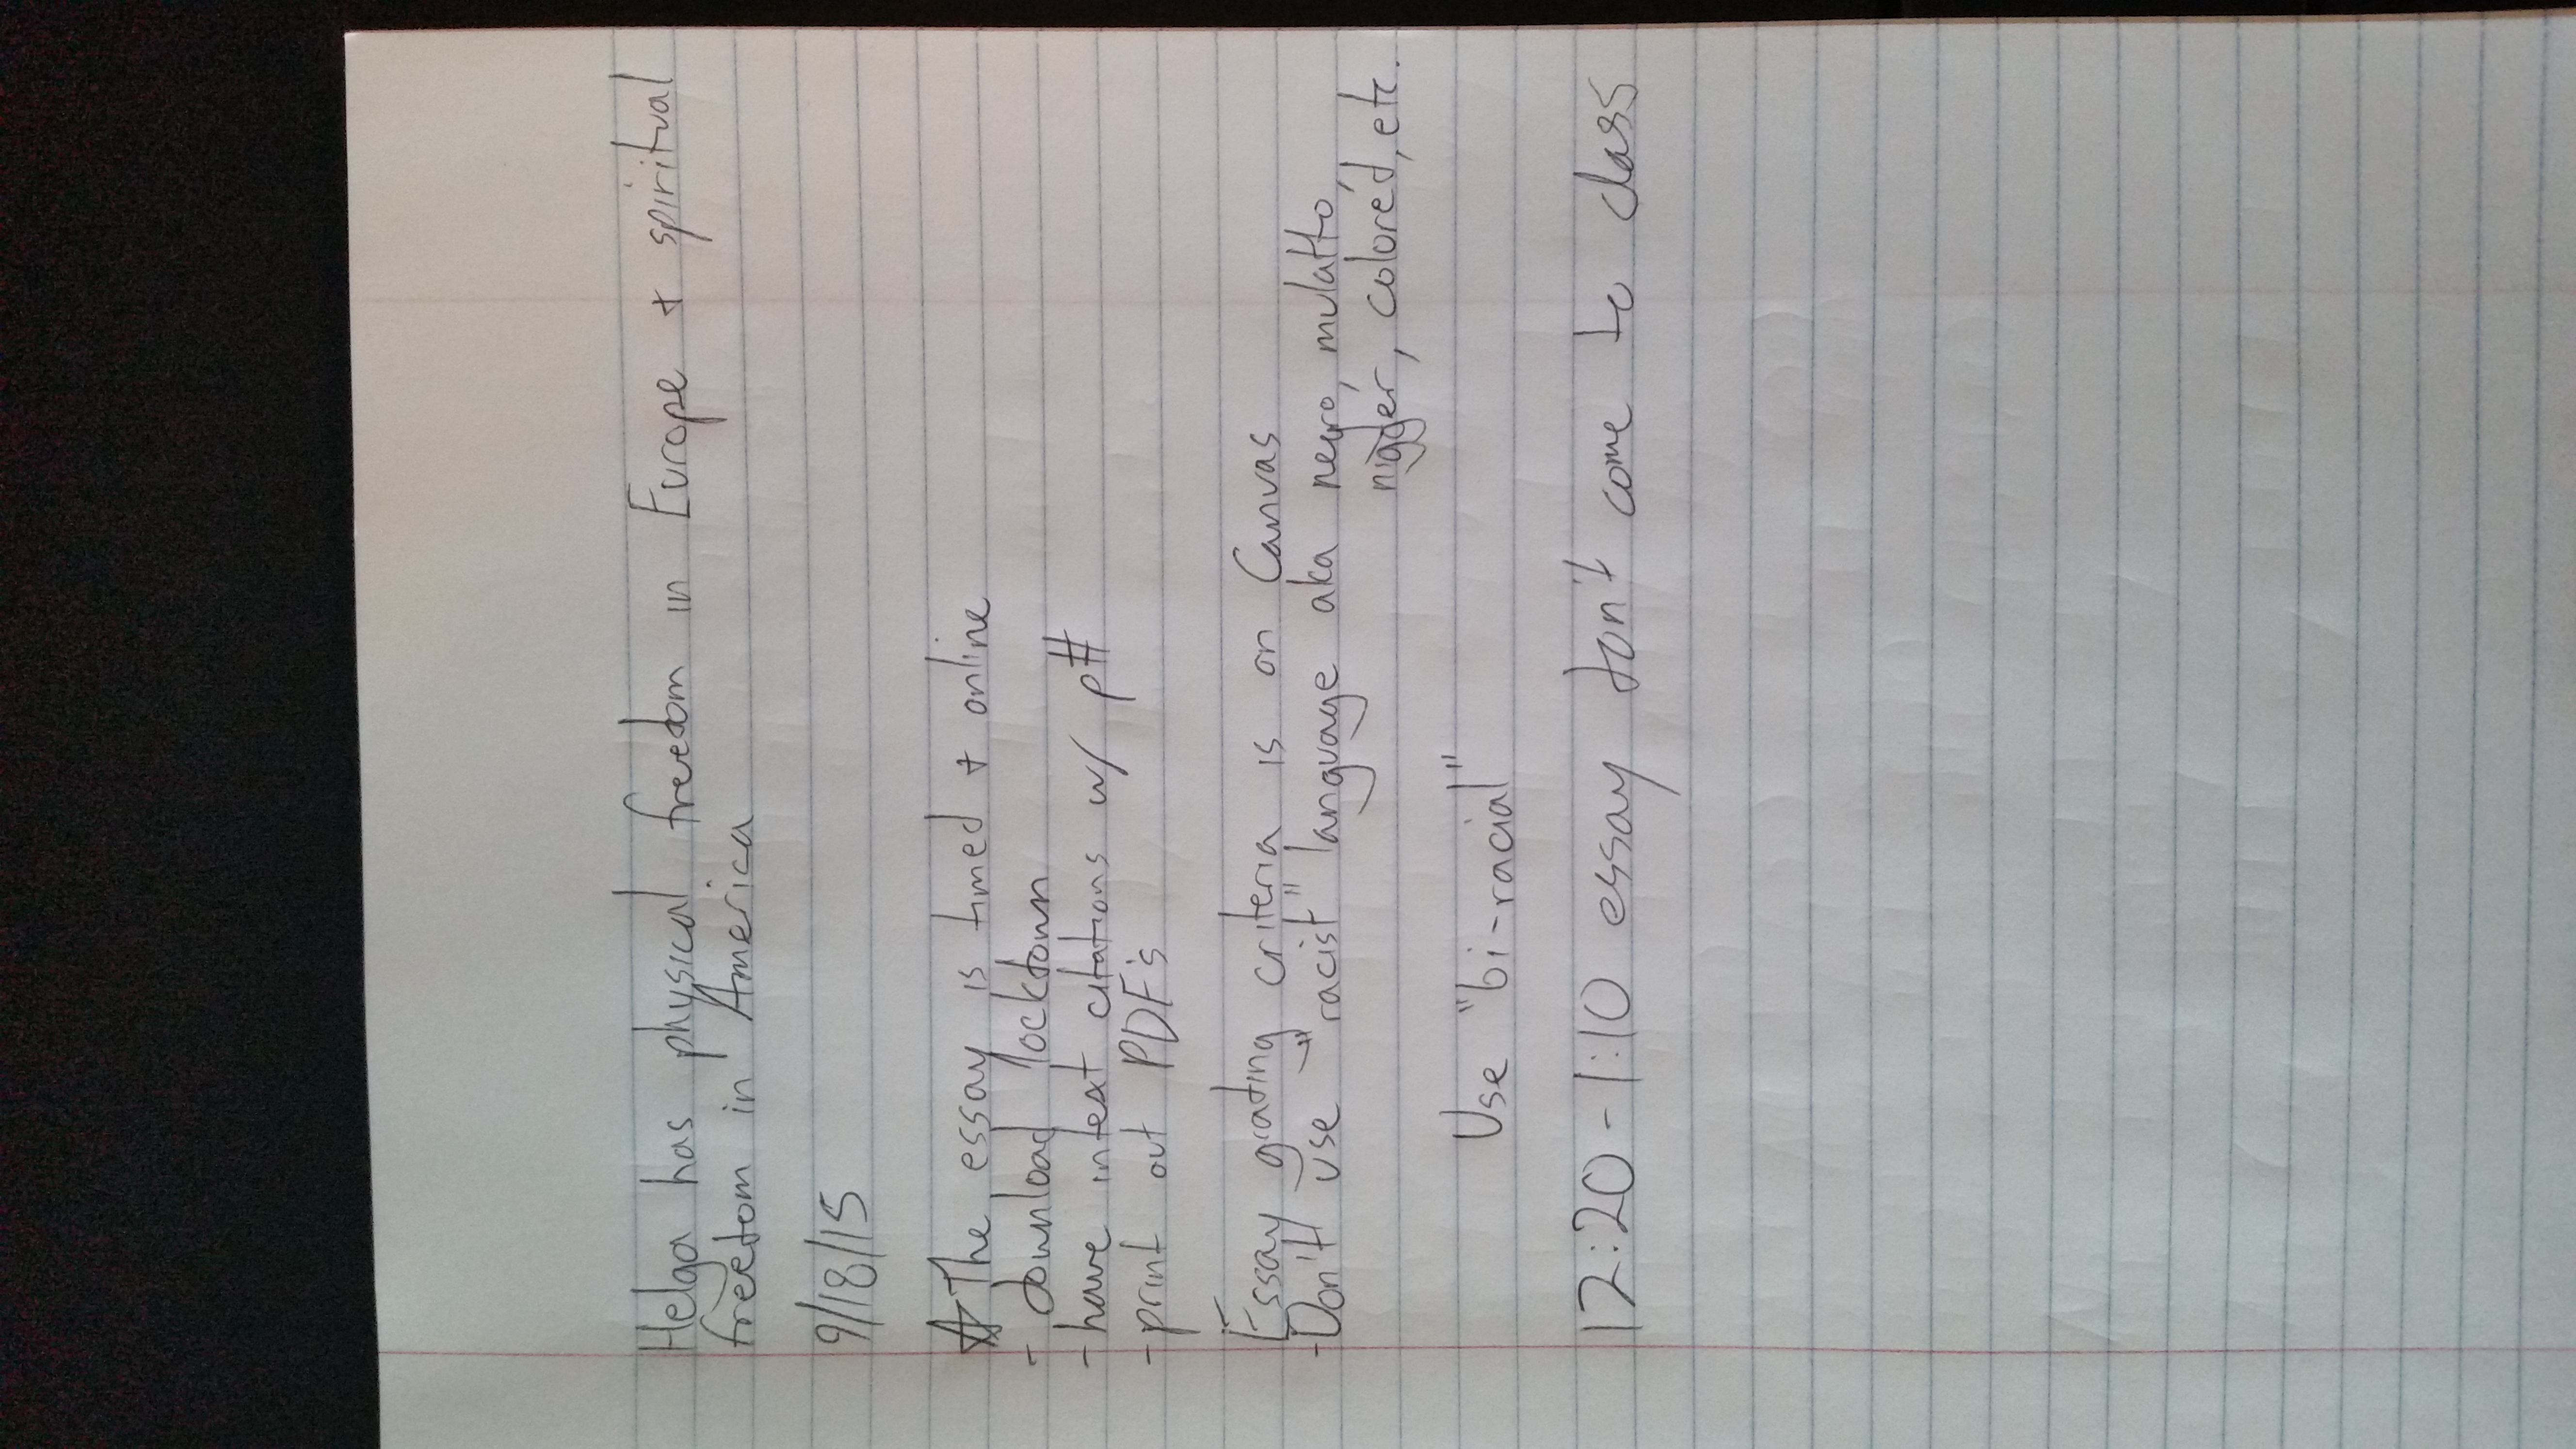 Helga has physical freedom in Europe + spiritual
freedom in America
9/18/15
☆The essay is timed + online
- download lockdown
- have intext citations w/ p#
- print out PDF's
Essay grading criteria is on Canvas
- Don't use "racist" language aka negro, mulatto,
nigger, colored, etc.
Use "bi-racial"
12:20-1:10 essay don't come to class